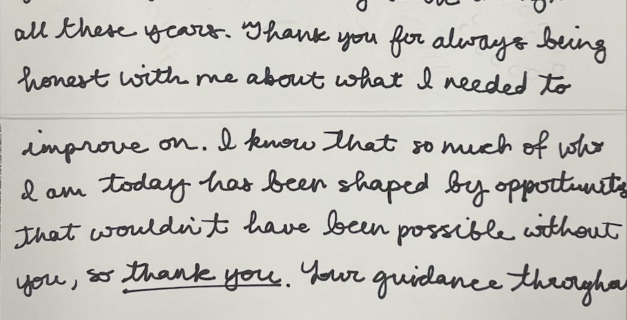 all these years. Thank you for always being
honest with me about what I needed to
improve on. I know that so much of who
I am today has been shaped by
that wouldn't have been possible without
you, so thank you. Your guidance